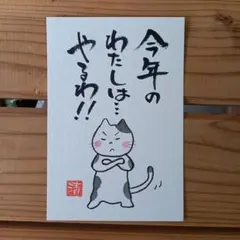 今年の
わたしは…
やるわ!!
清